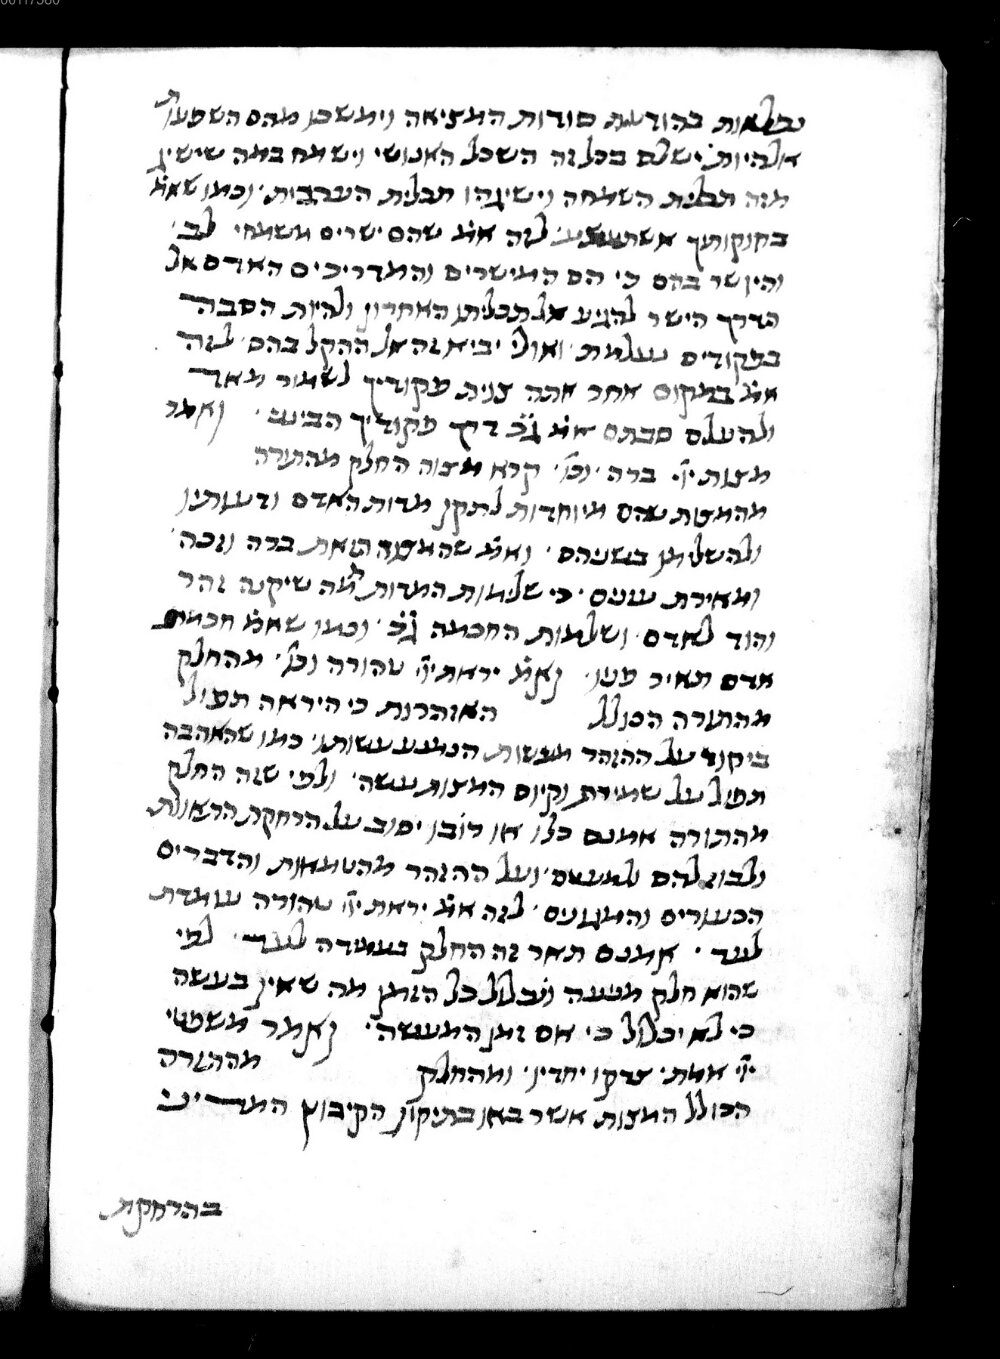 נפלאות בהודעת סודות המציאה וימשכו מהם השפעות
אלהיות ישלם בכל זה השכל האנושי וישמח במה שישיג
מזה תכלית השמחה וישיגהו תכלית הערבות וכמו שאמ'
בחוקותיך אשתעשע לזה אמ' שהם ישרים משמחי לב
והיושר בהם כי הם המישרים והמדריכים האדם אל
הדרך הישר להגיע אל תכליתו האחרון ולהיות הסבה
בפקודים נעלמת ואולי יביא זה אל ההקל בהם לזה
אמ' במקום אחר אתה צוית פקודיך לשמור מאד
ולהעלם סבתם אמ' ג"כ דרך פקודיך הבינני ואמר
מצות יי' ברה וכו' קרא מצוה החלק מהתורה
מהמצות שהם מיוחדות לתקן מדות האדם ודעותיו
ולהשלימו בשניהם ואמ' שהמצוה הזאת ברה וזכה
ומאירת עינים כי שלימות המדות ממה שיקנה זהר
והוד לאדם ושלמות החכמה ג"כ וכמו שאמ' חכמת
אדם תאיר פניו ואמ' יראת יי' טהורה וכו' מהחלק
מהתורה הכולל האזהרות כי היראה תפול
ביחוד על ההזהר מעשות הנמנע עשותו כמו שהאהבה
תפול על שמירת וקיום המצות עשה ולפי שזה החלק
מהתורה אמנם כלו או רובו יסוב על הרחקת התאוות
ולבוז להם ולמעטם ועל ההזהר מהטמאות והדברים
הכעורים והמגונים לזה אמ' יראת יי' טהורה עומדת
לעד אמנם תאר זה החלק בעמידה לעד לפי
שהוא חלק מניעה ויכלול כל הזמן מה שאין בעשה
כי לא יכלול כי אם זמן המעשה ואמר משפטי
יי' אמת צדקו יחדיו ומהחלק מהתורה
הכולל המצות אשר באו בתיקון הקיבוץ המדיני
בהרחקת